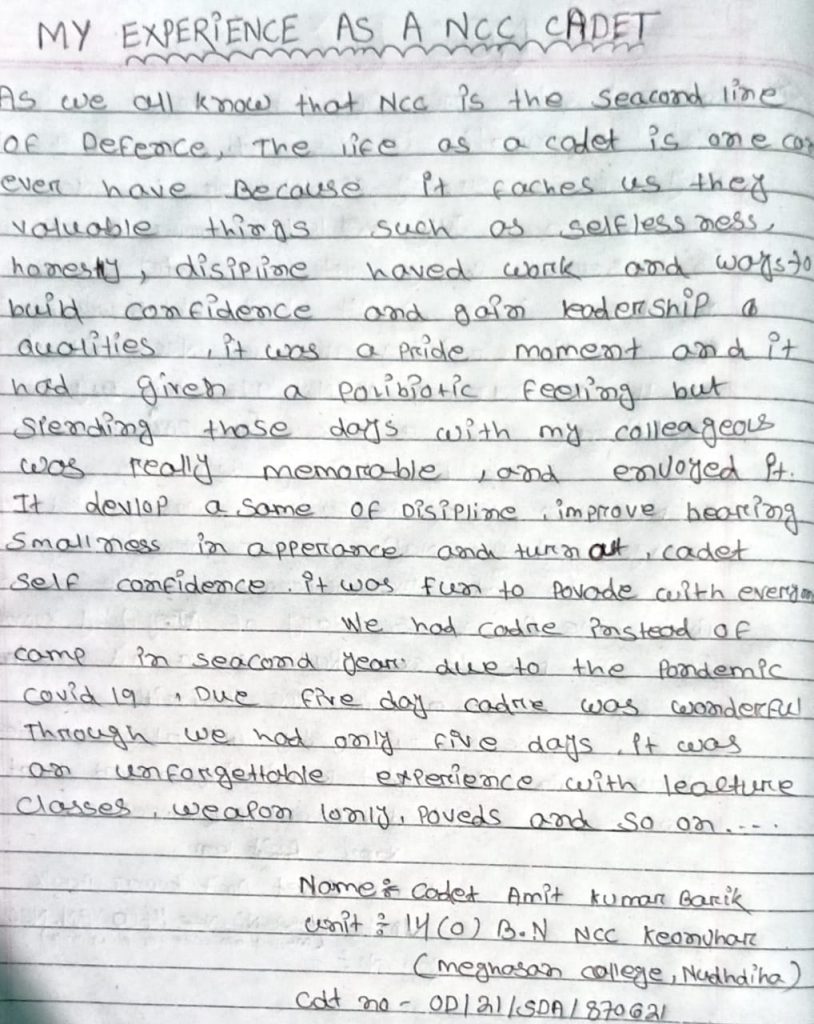 MY EXPERIENCE AS A NCC CADET
As we all know that Ncc is the seacond line
of Defence, The life as a cadet is one can
ever have Because it taches us they
valuable things such as selflessness,
honesty, disipline haved work and ways to
build confidence and gain leadership a
qualities , it was a pride moment and it
had given a feeling but
Slending those days with my colleageous
was really memorable , and envoyed it.
It devlop a same of Disipline , improve bearring
Smallness in apperance and turn out , cadet
self confidence . it was fun to Pavade with everyon
We had cadre instead of
camp in seacond year due to the Pandemic
covid 19 . Due five day cadre was wonderful
Through we had only five days . It was
an unforgettable experience with lealture
classes , weapon lonly, Paveds and so on ....
Name : Cadet Amit kumar Barik
unit : 14 (O) B.N NCC Keonjhar
(meghasan college, Nudhdiha)
Cdt no - OD/21/SDA/870621